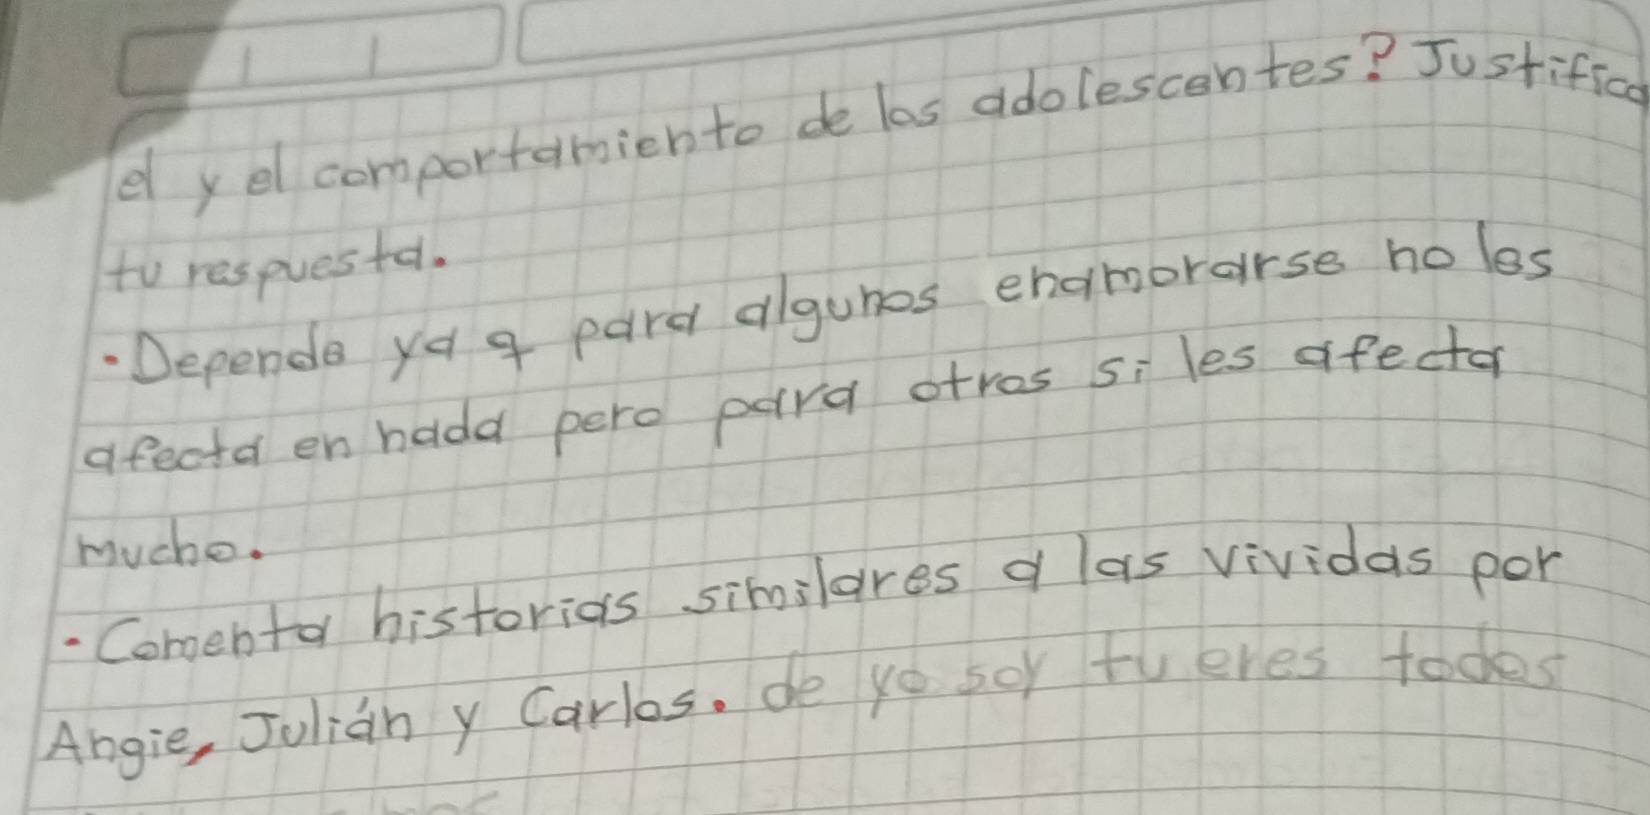 el y el comportamiento de los adolescentes? Justifica
tu respuesta.
• Depende ya q para algunos enamorarse no les
afecta en nada pero para otros si les afecta
mucho.
• Comenta historias similares a las vividas por
Angie, Julián y Carlos. de yo soy tu eres todos